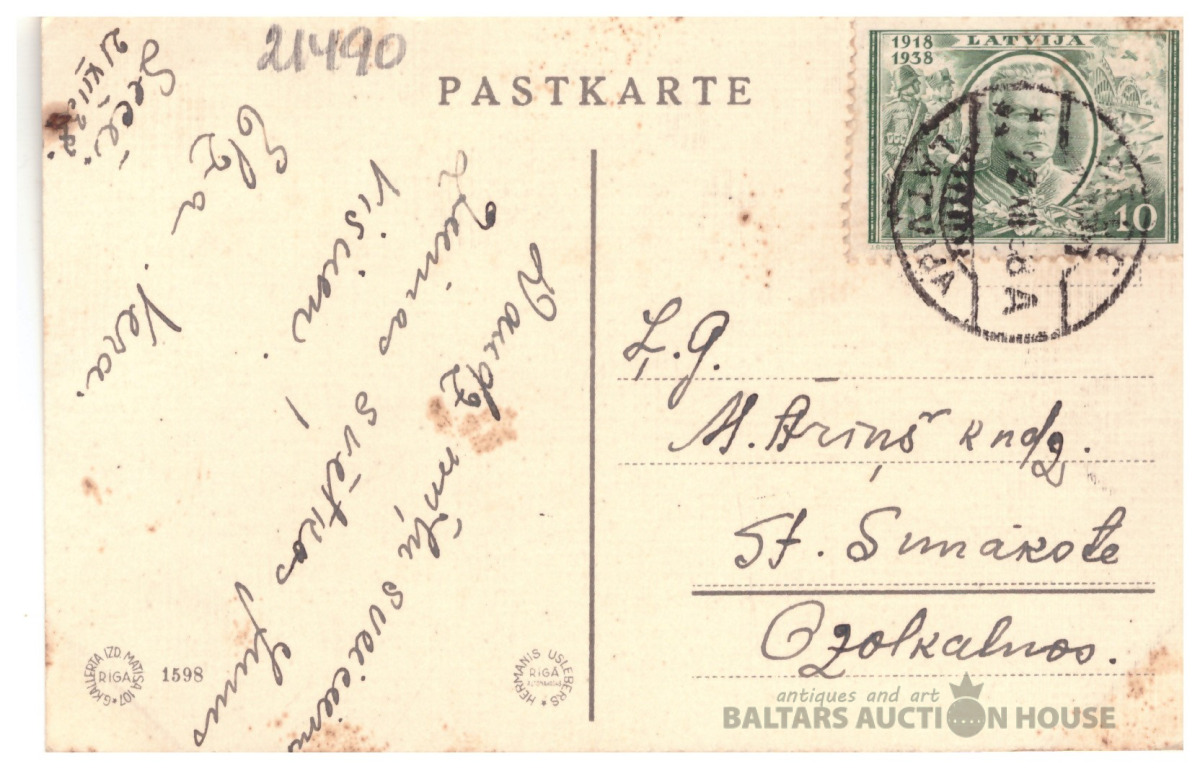 21490
PASTKARTE
1918
1938
LATVIJA
10
LATVIJA
A
Daudz mīļu sveicienu
Ziemas svētkos Jums
visiem!
Elza
Vera.
21 XII
Ļ. G.
M. Āriņš kndz.
St. Sunākste
Ozolkalnos.
G. KALLERTA IZD. MATISA 107
RIGA
1598
HERMANIS USLEBERS
RIGA
antiques and art
BALTARS AUCTION HOUSE